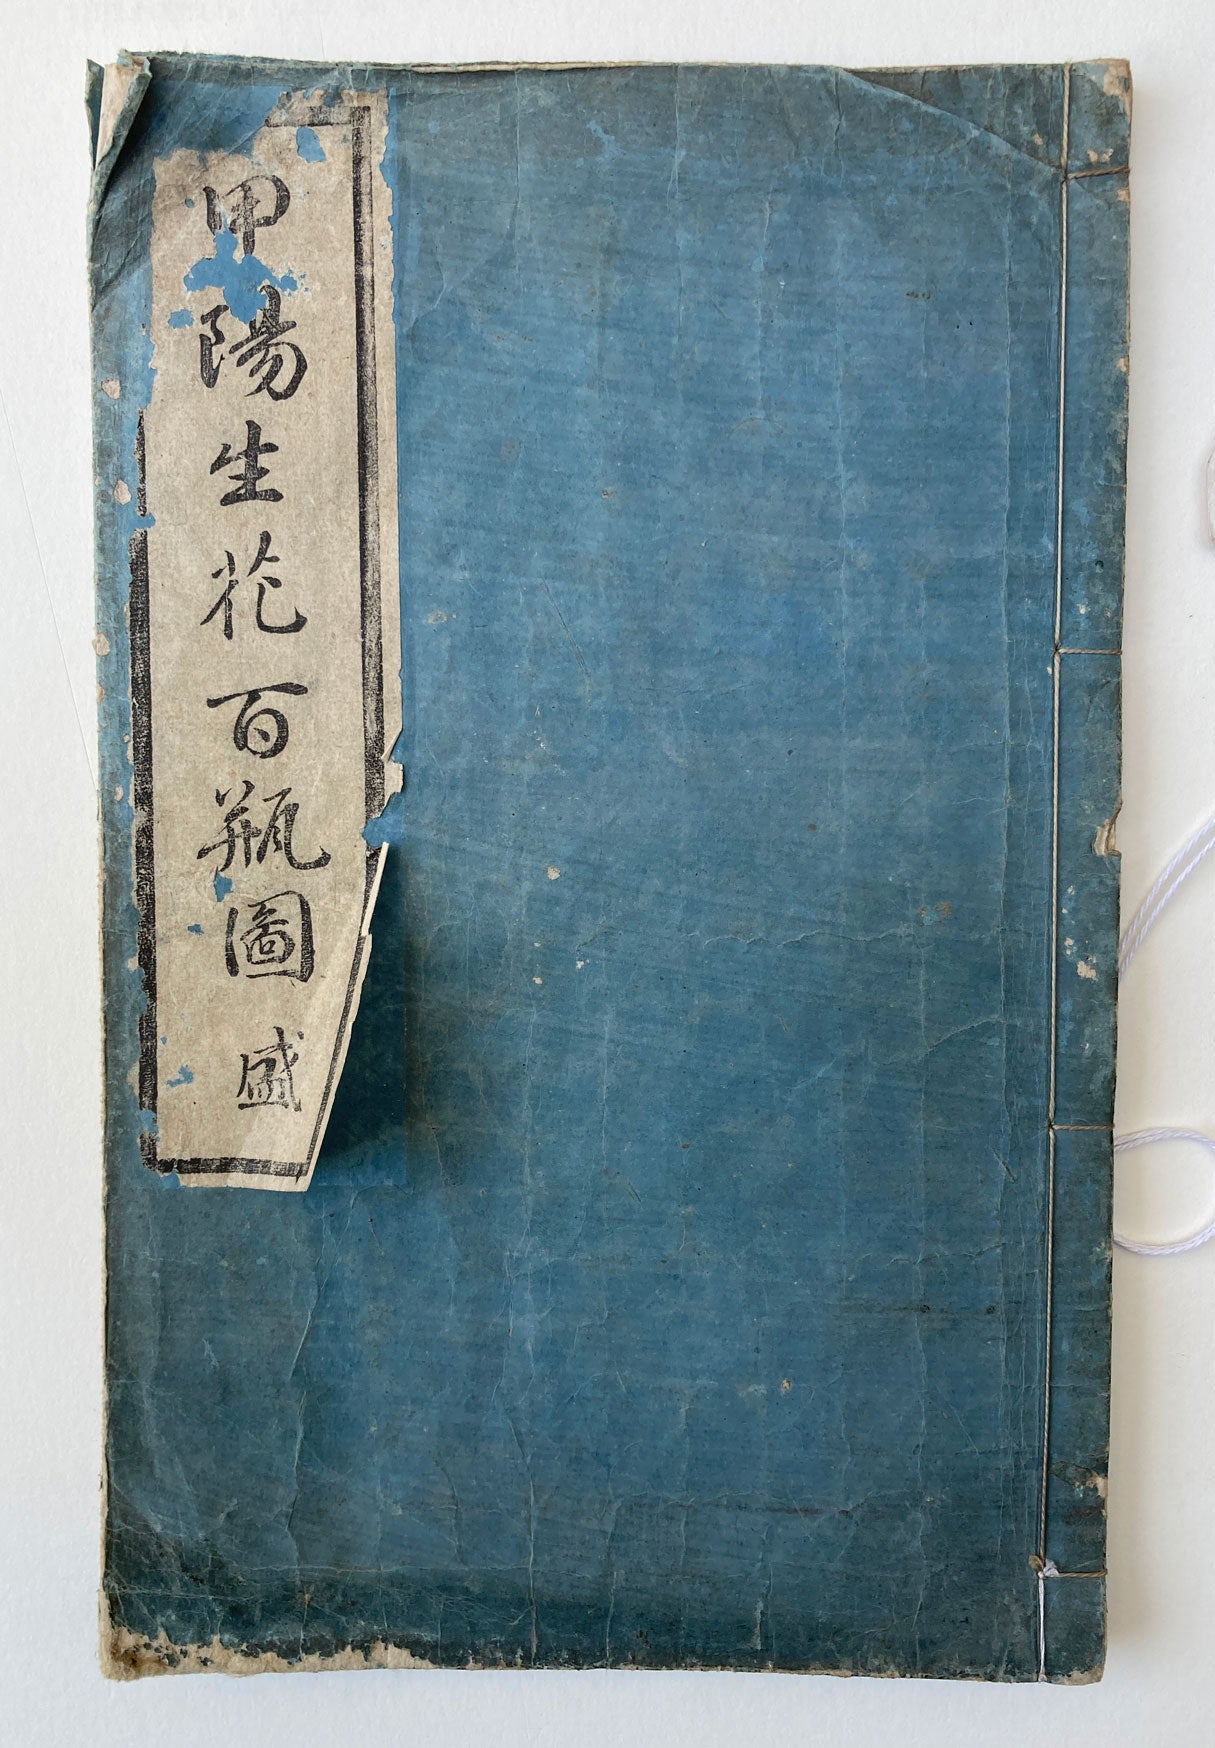 甲陽生花百瓶圖 盛